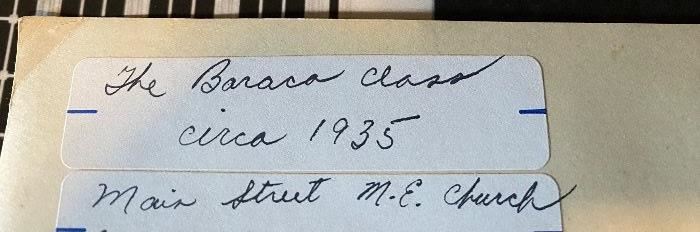 The Baraca Class
circa 1935
Main Street M.E. Church